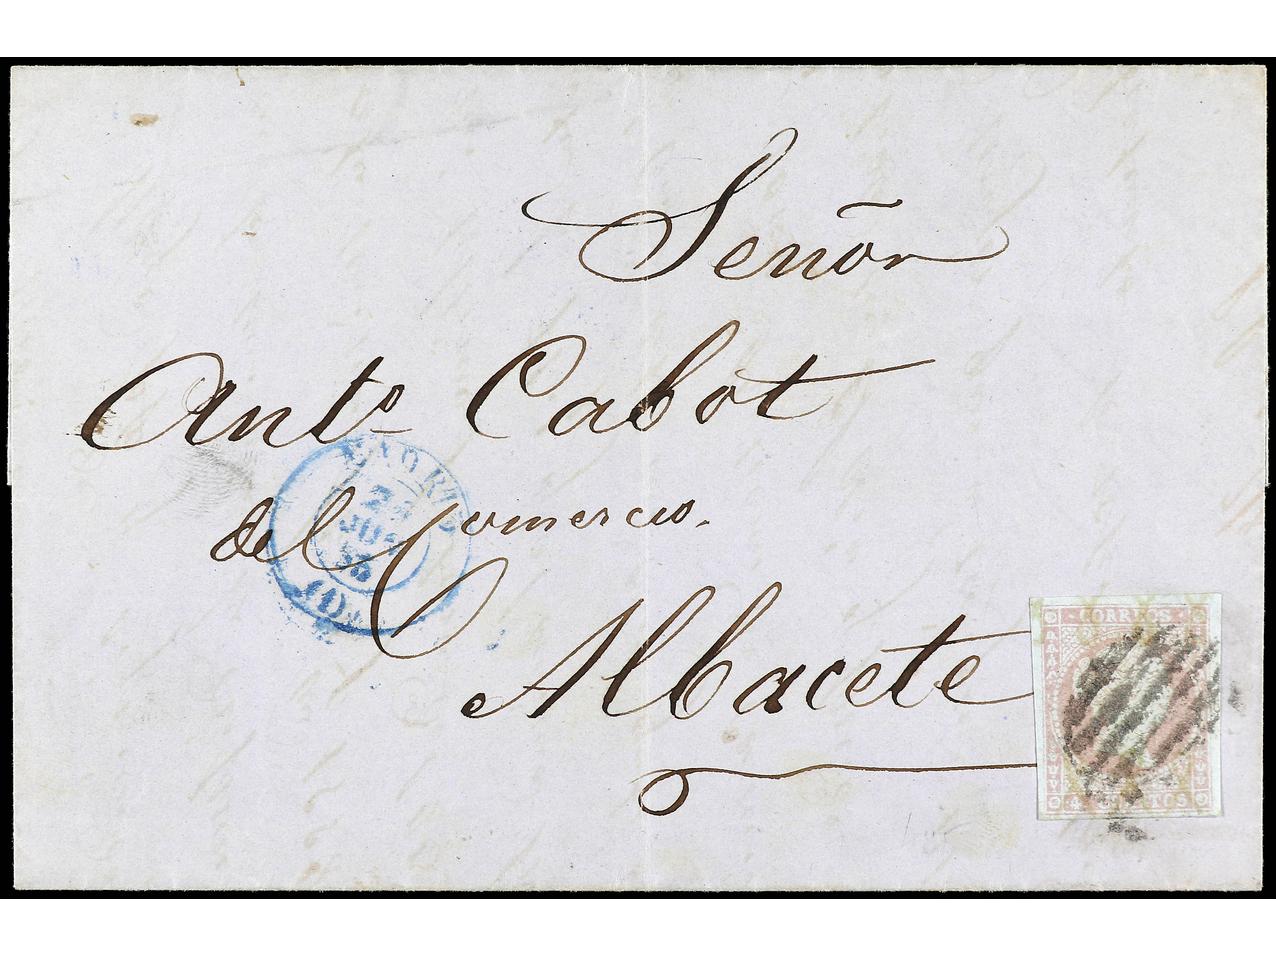 Señor
Antº Cabot
del Comercio.
Albacete
MADRID
JUN
(1)
CORREOS
4 CUARTOS